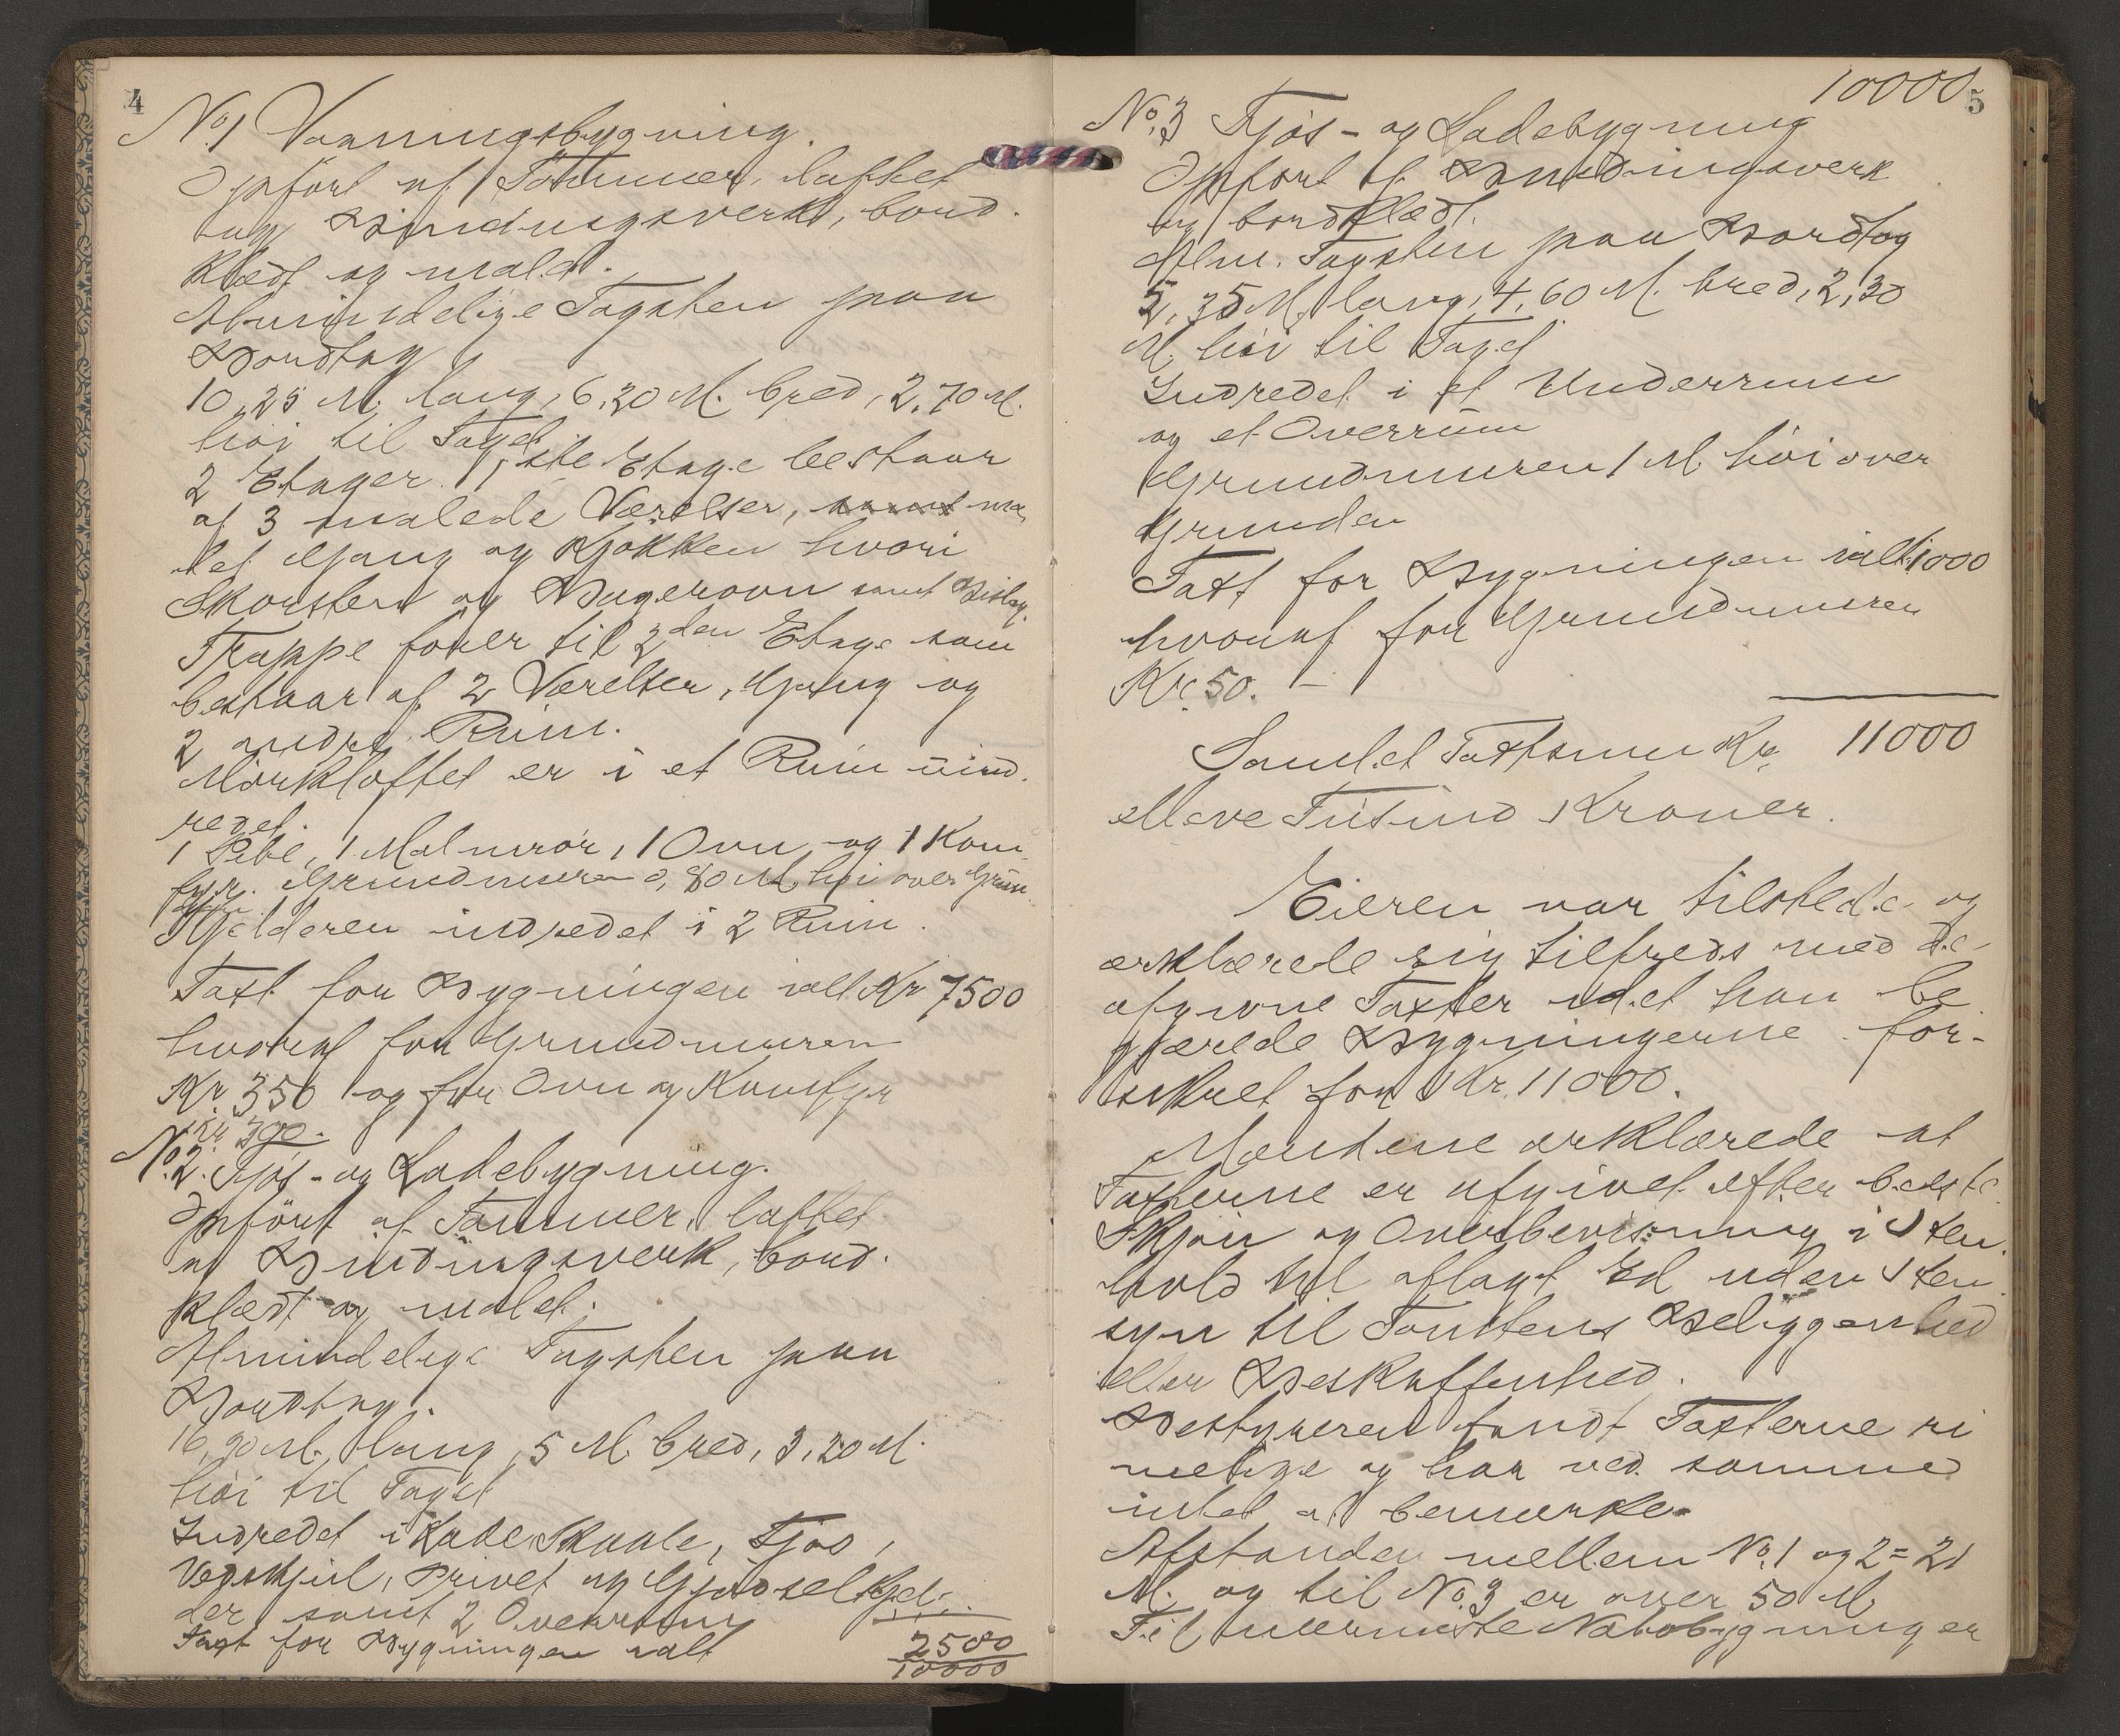 4
No. 1 Vaaningsbygning.
Opført af Tømmer, laftet
og Bindingsverk, bord-
klædt og malet.
Almindelige Tagsten paa
Bordtag
10,25 M. lang, 6,20 M. bred, 2,70 M.
høi til Taget.
2 Etager. 1ste Etage bestaar
af 3 malede Værelser, samt ma-
let Gang og Kjøkken hvori
Skorsten og Bagerovn samt Bislag.
Trappe fører til 2den Etage som
bestaar af 2 Værelser, Gang og
2 andre Rum.
Mørkloftet er i et Rum uind-
redet.
1 Pibe, 1 Malmrør, 1 Ovn og 1 Kom-
fyr. Grundmuren 0,80 M. høi over Grun-
Kjelderen indredet i 2 Rum.
Taxt for Bygningen ialt Kr 7500
hvoraf for Grundmuren
Kr. 350 og for Ovn og Komfyr
Kr 300.-
No. 2. Fjøs- og Ladebygning.
Opført af Tømmer, laftet
og Bindingsverk, bord-
klædt og malet.
Almindelige Tagsten paa
Bordtag.
16,90 M. lang, 5 M. bred, 3,20 M.
høi til Taget
Indredet i Lade Skaale, Fjøs,
Vedskjul, Privet og Gjødselkjel-
der samt 2 Overrum
Taxt for Bygningen ialt 2500
10000
10000
5
No. 3 Fjøs- og Ladebygning
Opført af Bindingsverk
og bordklædt.
Alm. Tagsten paa Bordtag
5,35 M. lang, 4,60 M. bred, 2,30
M. høi til Taget
Indredet i et Underrum
og et Overrum
Grundmuren 1 M. høi over
Grunden
Taxt for Bygningen ialt 1000
hvoraf for Grundmuren
Kr. 50. –
Samlet Taxtsum Kr. 11000
elleve Tusind Kroner.
Eieren var tilstede og
erklærede sig tilfreds med de
afgivne Taxter idet han be-
gjærede Bygningerne for-
sikret for Kr. 11000.
Mændene erklærede at
Taxterne er afgivet efter bedste
Skjøn og Overbevisning i Hen-
hold til aflagt Ed uden Hen-
syn til Tomtens Beliggenhed
eller Beskaffenhed.
Bestyreren fandt Taxterne ri-
melige og har ved samme
intet at bemerke
Afstanden mellem No. 1 og 2 = 21
M. og til No. 3 er over 50 M.
Til nærmeste Nabobygninger